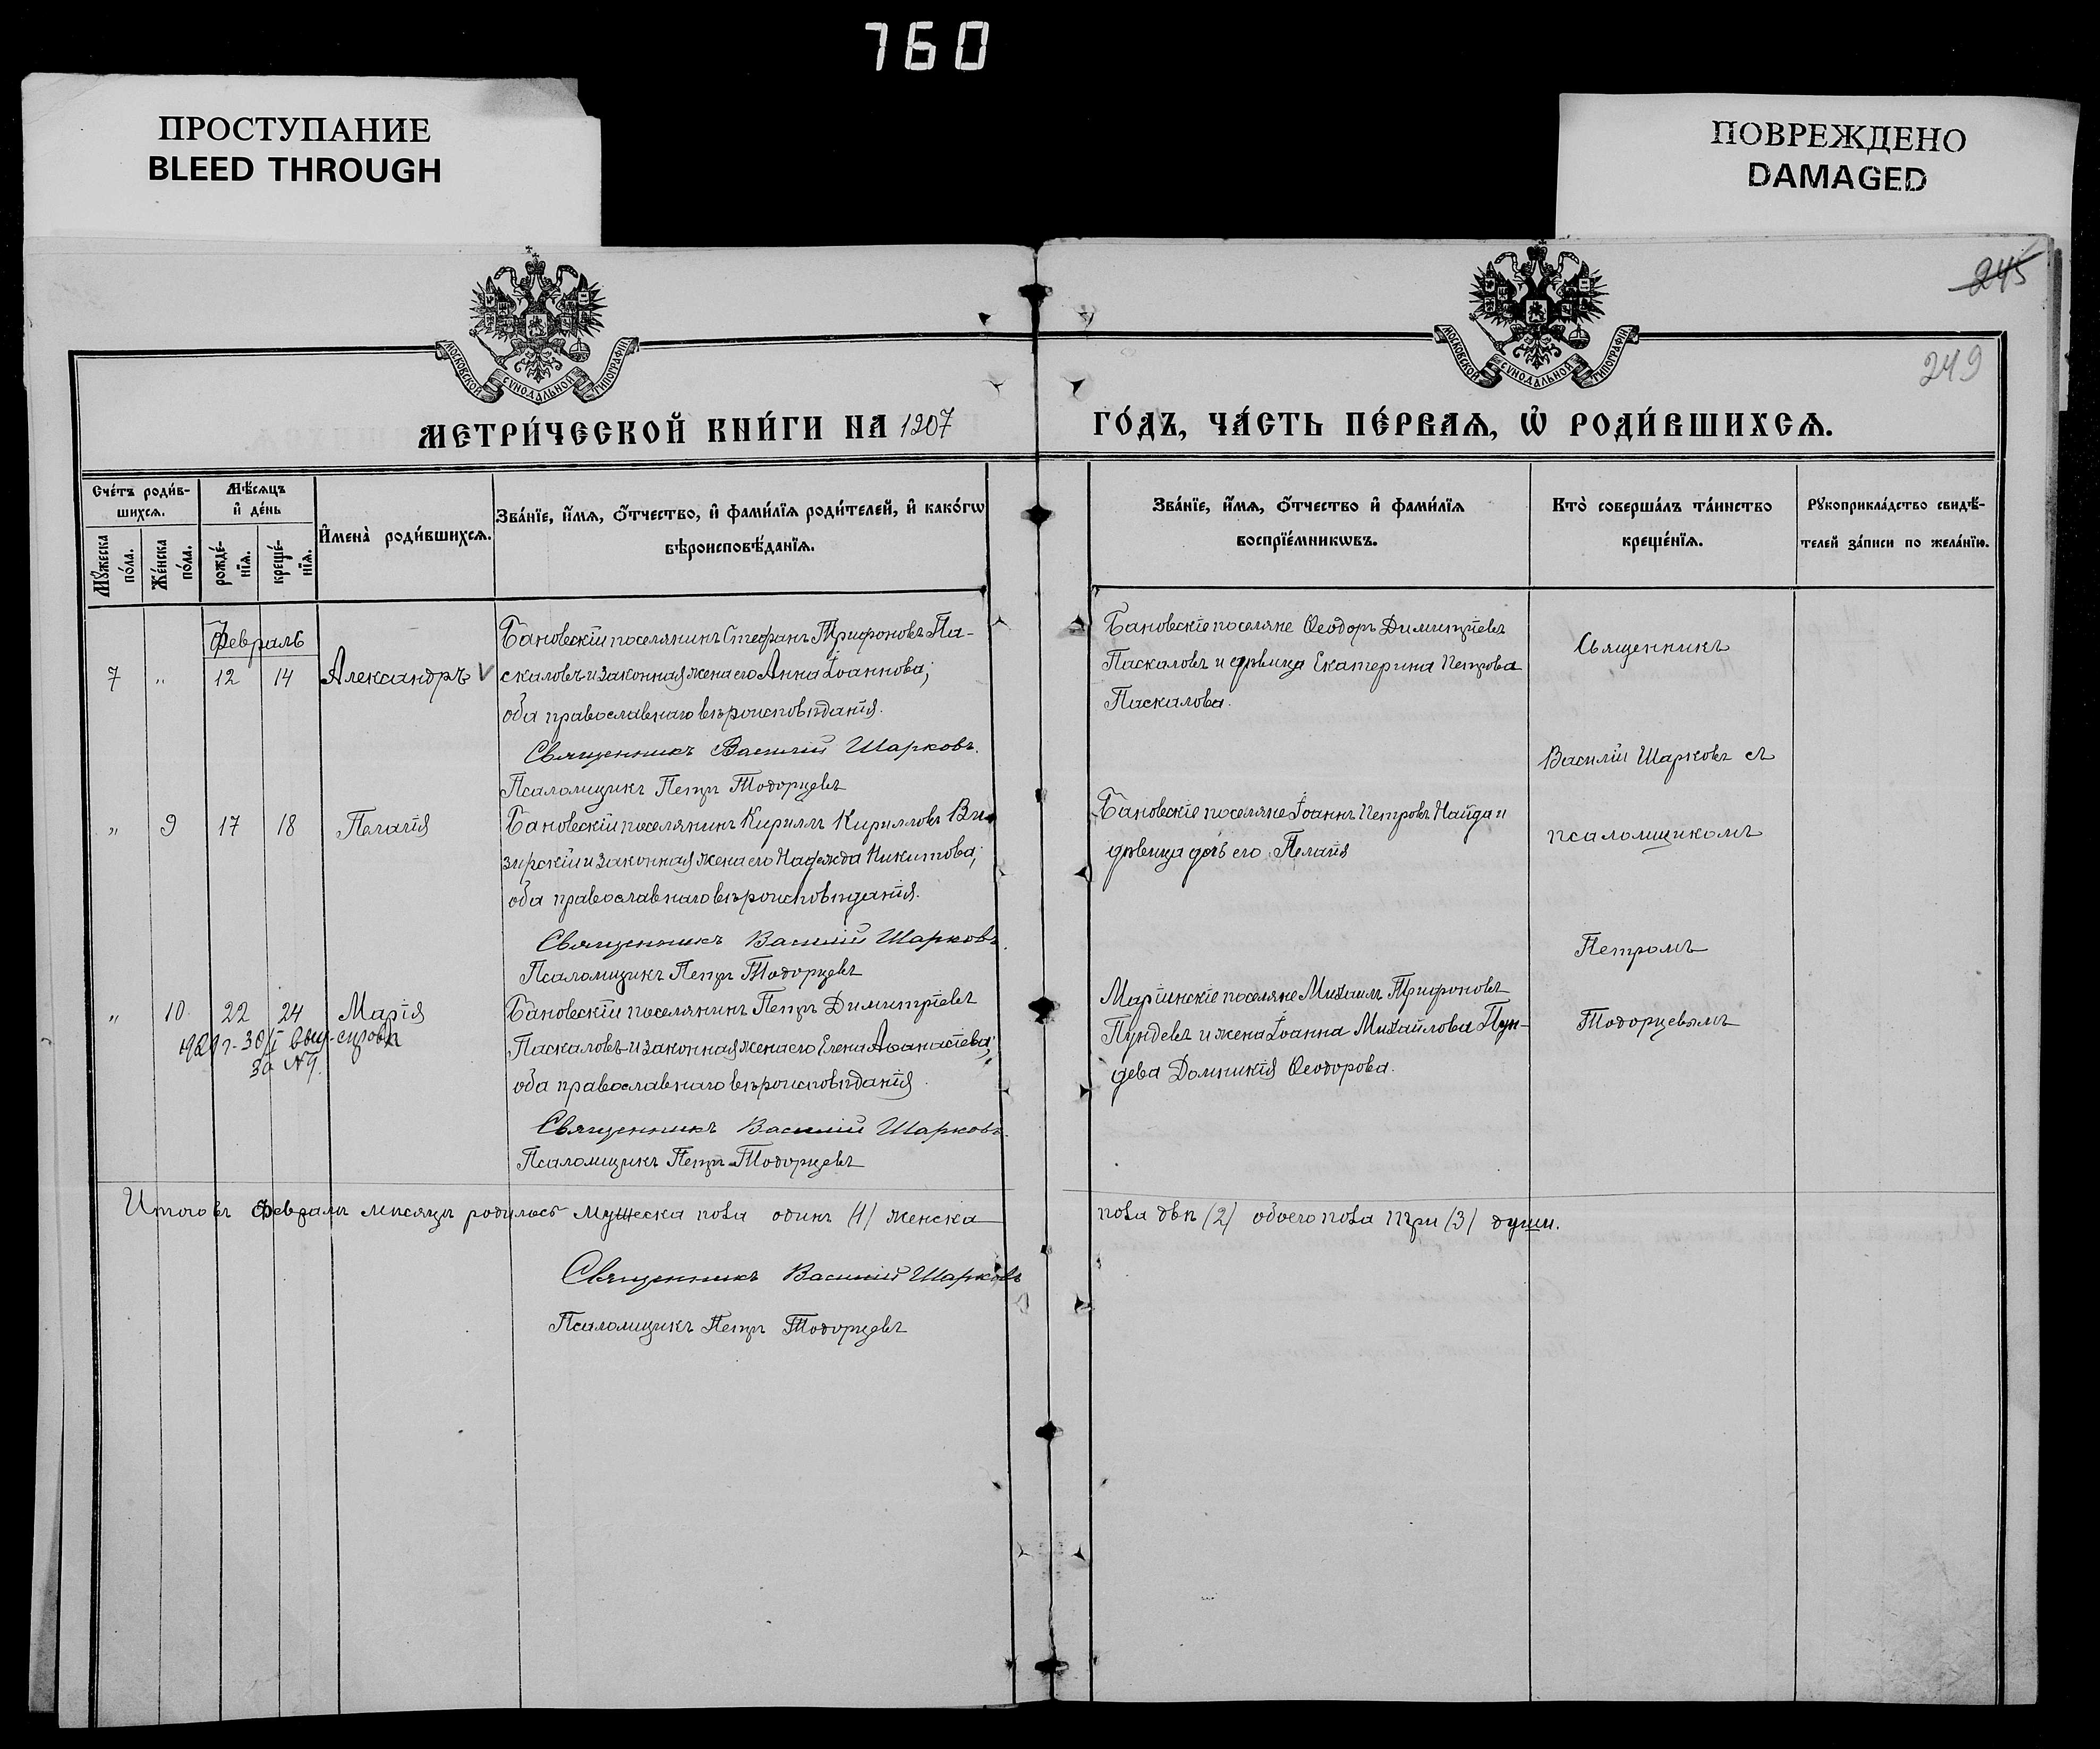 760
ПРОСТУПАНИЕ
BLEED THROUGH
ПОВРЕЖДЕНО
DAMAGED
МОСКОВСКОЙ СѴНОДАЛЬНОЙ ТИПОГРАФІИ
МОСКОВСКОЙ СѴНОДАЛЬНОЙ ТИПОГРАФІИ
245
249
МЕТРИ́ЧЕСКОЙ КНИ́ГИ НА 1907 ГО́ДЪ, ЧА́СТЬ ПЕ́РВАѦ, Ѡ҆ РОДИ́ВШИХСѦ.
Сче́тъ роди́в-
шихсѧ.
Мꙋ́жеска
по́ла.
Же́нска
по́ла.
Мѣ́сѧцъ
и҆ де́нь
рожде́-
нїѧ.
креще́-
нїѧ.
И҆мена̀ роди́вшихсѧ.
Зва́нїе, и҆́мѧ, ѻ҆́тчество, и҆ фами́лїѧ роди́телей, и҆ како́гѡ
вѣроисповѣ́данїѧ.
Зва́нїе, и҆́мѧ, ѻ҆́тчество и҆ фами́лїѧ
воспрїе́мникѡвъ.
Кто̀ соверша́лъ та́инство
креще́нїѧ.
Рꙋкоприкла́дство свидѣ́-
телей за́писи по жела́нїю.
Февраль
7 " 12 14 Александръ
Бановскій поселянинъ Стефанъ Трифоновъ Па-
скаловъ и законная жена его Анна Іоаннова;
оба православнаго вѣроисповѣданія.
Священникъ Василій Шарковъ.
Псаломщикъ Петръ Тодорцевъ
Бановскіе поселяне Ѳеодоръ Димитріевъ
Паскаловъ и дѣвица Екатерина Петрова
Паскалова.
" 9 17 18 Пелагія
Бановскій поселянинъ Кириллъ Кирилловъ Ви-
зирскій и законная жена его Надежда Никитова;
оба православнаго вѣроисповѣданія.
Священникъ Василій Шарковъ.
Псаломщикъ Петръ Тодорцевъ
Бановскіе поселяне Іоаннъ Петровъ Найда и
дѣвица дочь его Пелагія
" 10 22 24 Марія
за №9.
Бановскій поселянинъ Петръ Димитріевъ
Паскаловъ и законная жена его Елена Аѳанасіева;
оба православнаго вѣроисповѣданія.
Священникъ Василій Шарковъ.
Псаломщикъ Петръ Тодорцевъ
Маріинскіе поселяне Михаилъ Трифоновъ
Пундевъ и жена Іоанна Михайлова Пун-
дева Домникія Ѳеодорова.
Священникъ
Василій Шарковъ съ
псаломщикомъ
Петромъ
Тодорцевымъ
Итого въ Февралѣ мѣсяцѣ родилось мужеска пола одинъ (1) женска пола двѣ (2) обоего пола три (3) души.
Священникъ Василій Шарковъ
Псаломщикъ Петръ Тодорцевъ